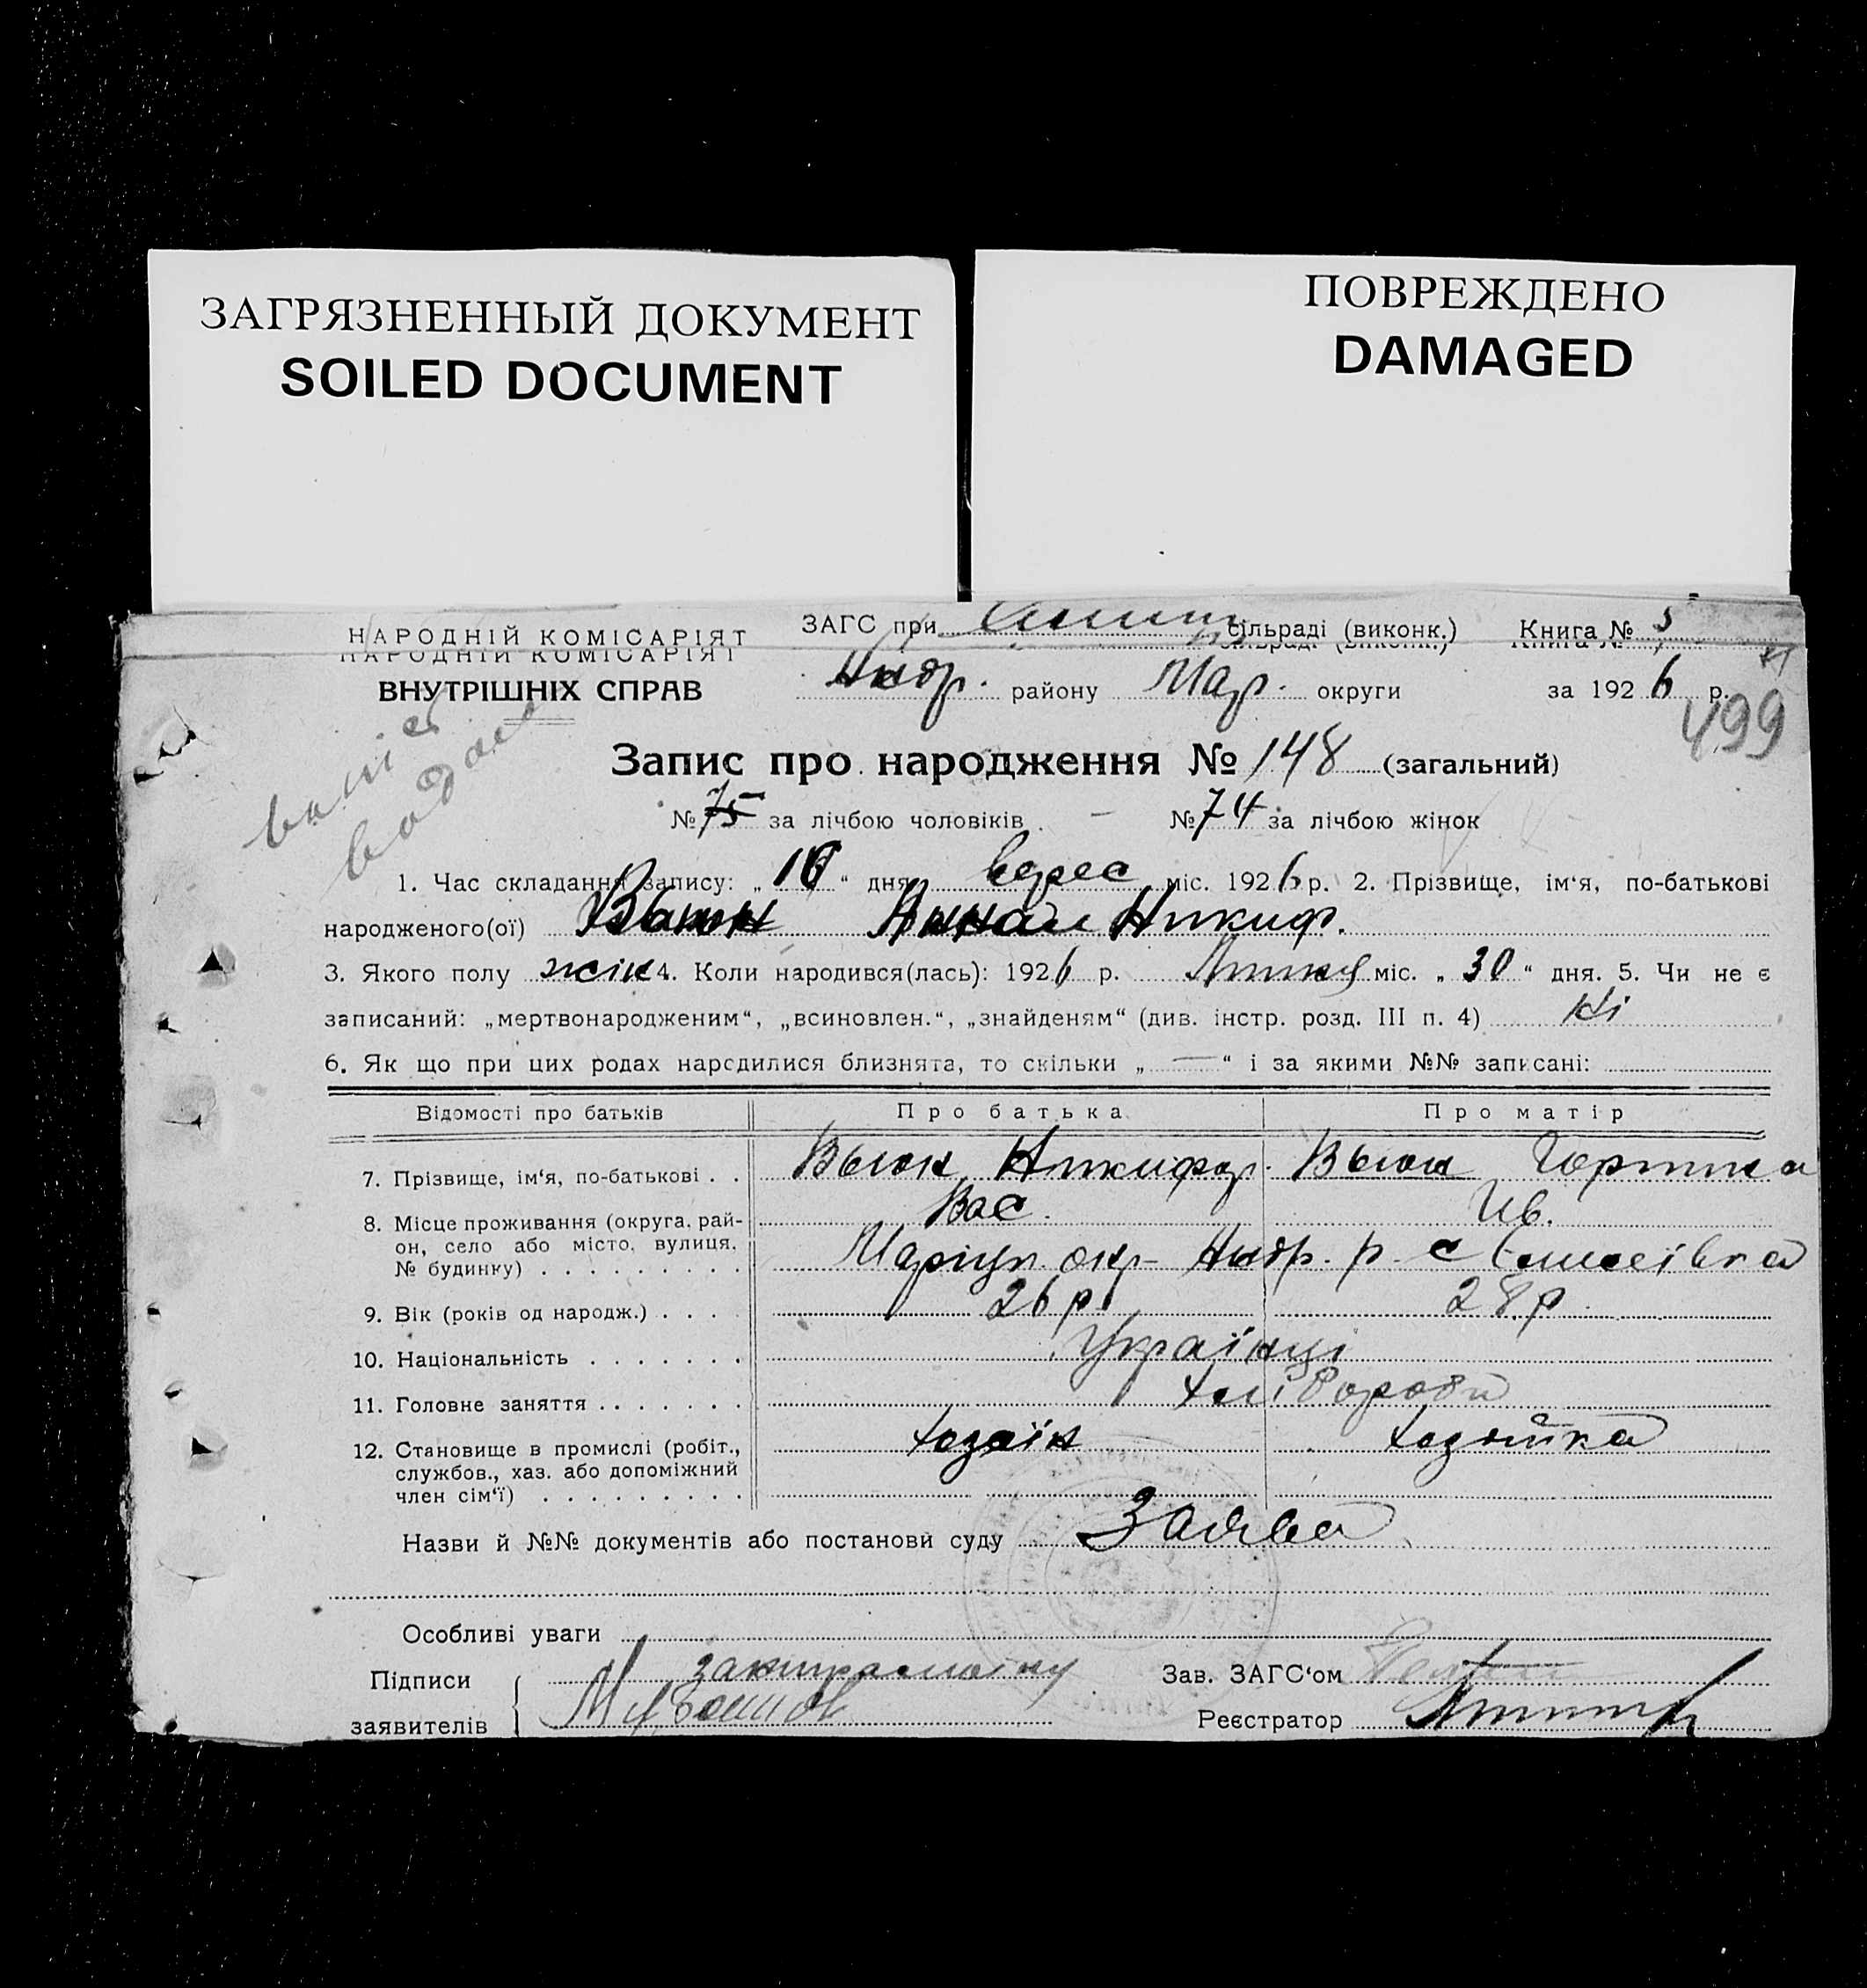 ЗАГРЯЗНЕННЫЙ ДОКУМЕНТ
SOILED DOCUMENT
ПОВРЕЖДЕНО
DAMAGED
НАРОДНІЙ КОМІСАРІЯТ
ВНУТРІШНІХ СПРАВ
ЗАГС при сільраді (виконк.) Книга № 5
району Мар. округи за 1926 р.
499
Запис про народження № 148 (загальний)
№ 75 за лічбою чоловіків — № 74 за лічбою жінок
1. Час складання запису: „ 10 “ дня верес міс. 1926 р. 2. Прізвище, ім‘я, по-батькові
народженого(ої) Никиф.
3. Якого полу жін 4. Коли народився(лась): 1926 р. Липня міс. „ 30 “ дня. 5. Чи не є
записаний: „мертвонародженим“, „всиновлен.“, „знайденям“ (див. інстр. розд. III п. 4) Ні
6. Як що при цих родах народилися близнята, то скільки „ — “ і за якими №№ записані:
Відомості про батьків Про батька Про матір
7. Прізвище, ім‘я, по-батькові . . Вьюн Никифор. Вьюн Горпина
Вас. Ив.
8. Місце проживання (округа, рай-
он, село або місто, вулиця,
№ будинку) . . . . . . . . . Маріуп. окр- р. с
9. Вік (років од народж.) . . . . 26 р. 28 р
10. Національність . . . . . . . Українці
11. Головне заняття . . . . . . . Хліборобы
12. Становище в промислі (робіт.,
службов., хаз. або допоміжний
член сім‘ї) . . . . . . . . . Хозаїн Хозяйка
Назви й №№ документів або постанови суду Заява
Особливі уваги
Підписи
заявителів
Зав. ЗАГС‘ом
Реєстратор